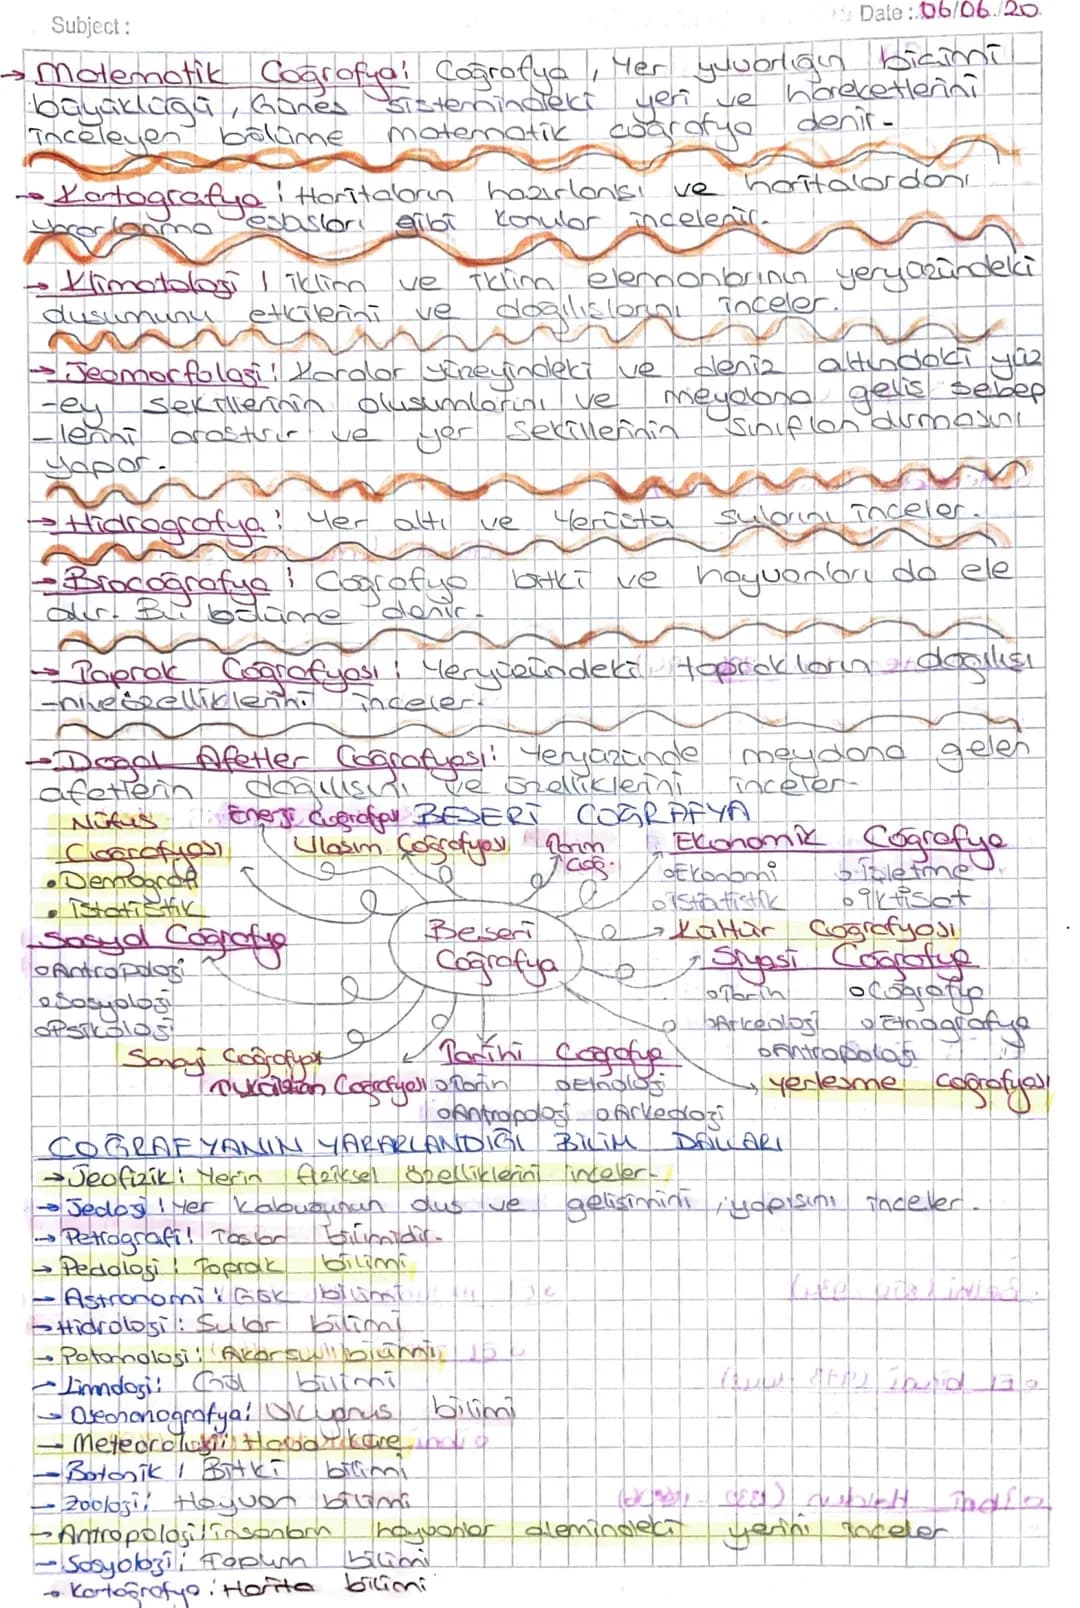 Subject :
Date : 06/06/20
→ Matematik Coğrafya: Coğrafya, Yer yuvarlığın biçimi
büyüklüğü, Güneş sistemindeki yeri ve hareketlerini
inceleyen bölüme matematik coğrafya denir-
→ Kartografya: Haritaların hazırlanışı ve haritalardanı
yararlanma esasları gibi konular incelenir.
→ Klimatoloji: iklim ve iklim elemanlarının yeryüzündeki
dusumunu etkilerini ve dağılışlarını inceler.
→ Jeomorfoloji: Karalar yüzeyindeki ve deniz altındaki yüz
-ey şekillerinin oluşumlarını ve meydana geliş sebep
-lerini araştırır ve yer şekillerinin sınıflandırmasını
yapar.
→ Hidrografya: Yer altı ve Yerüstü sularını inceler.
→ Biocoğrafya: Coğrafya bitki ve hayvanları da ele
alır. Bu bölüme denir.
→ Toprak Coğrafyası: Yeryüzündeki toprakların dağılışı
-nı ve özelliklerini inceler.
→ Doğal Afetler Coğrafyası: Yeryüzünde meydana gelen
afetlerin dağılışını ve özelliklerini inceler-
BEŞERİ COĞRAFYA
Nüfus Coğrafyası
• Demografi
• istatistik
Enerji Coğrafya
Ulaşım Coğrafyası
Tarım Coğ.
Ekonomik Coğrafya
o Ekonomi o işletme
o istatistik o iktisat
Beşeri
Coğrafya
→ Kültür Coğrafyası
Sosyal Coğrafya
o Antropoloji
o Sosyoloji
o Psikoloji
Siyasi Coğrafya
o Tarih o Coğrafya
o Arkeoloji o Etnografya
o Antropoloji
Sanayi Coğrafya
Coğrafyası
Tarihi Coğrafya
o Tarih o Etnoloji
o Antropoloji o Arkeoloji
yerleşme coğrafyası
COĞRAFYANIN YARARLANDIĞI BİLİM DALLARI
→ Jeofizik: Yerin fiziksel özelliklerini inceler.
→ Jeoloji: Yer kabuğunun dus ve gelişimini, yapısını inceler.
→ Petrografi: Taşlar bilimidir.
→ Pedoloji: Toprak bilimi
→ Astronomi: Gök bilimi
→ Hidroloji: Sular bilimi
→ Potomoloji: Akarsu bilimi
→ Limnoloji: Göl bilimi
→ Oseonanografya: Okyanus bilimi
→ Meteoroloji: Hava Küre
→ Botanik: Bitki bilimi
→ Zooloji: Hayvan bilimi
→ Antropoloji: insanların hayvanlar alemindeki yerini inceler
→ Sosyoloji: Toplum bilimi
→ Kartoğrafya: Harita bilimi